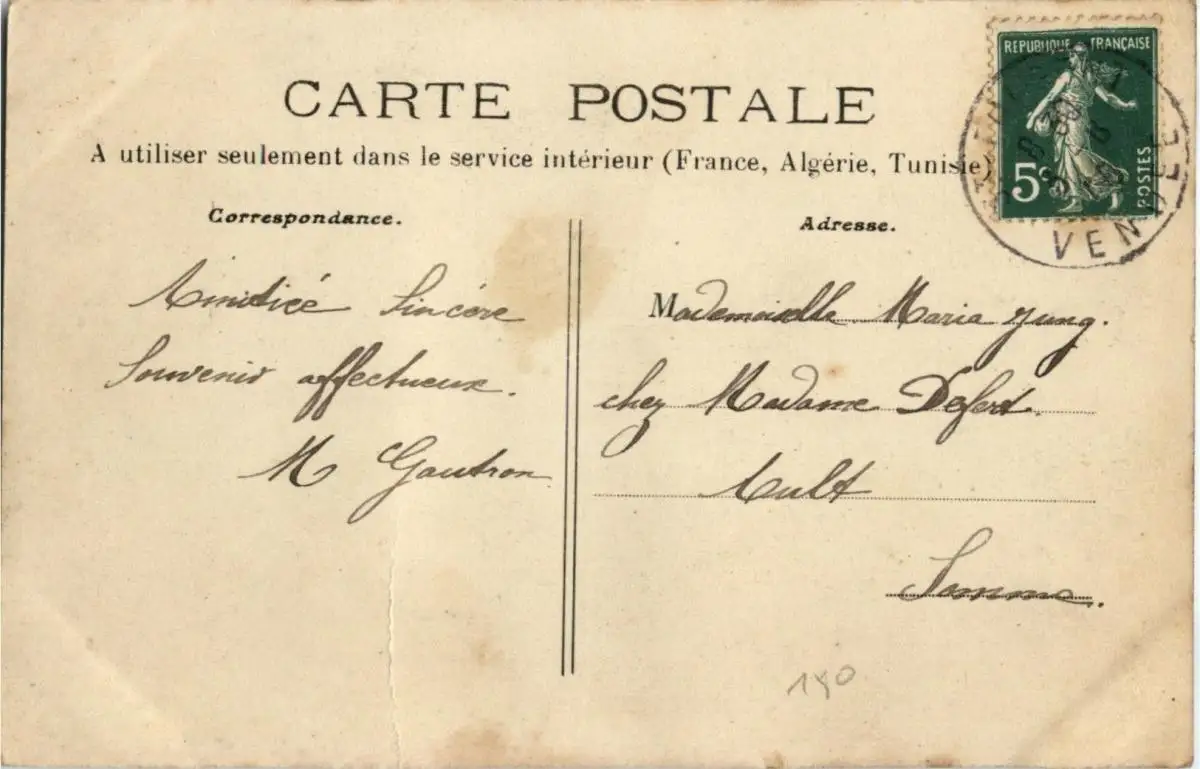 CARTE POSTALE
A utiliser seulement dans le service intérieur (France, Algérie, Tunisie)
REPUBLIQUE FRANÇAISE
5c
POSTES
VENDEE
Correspondance.
Amitié Sincère
Souvenir affectueux.
M Gautron
Adresse.
Mademoiselle Maria Jung.
chez Madame Defert.
Ault
Somme.
190